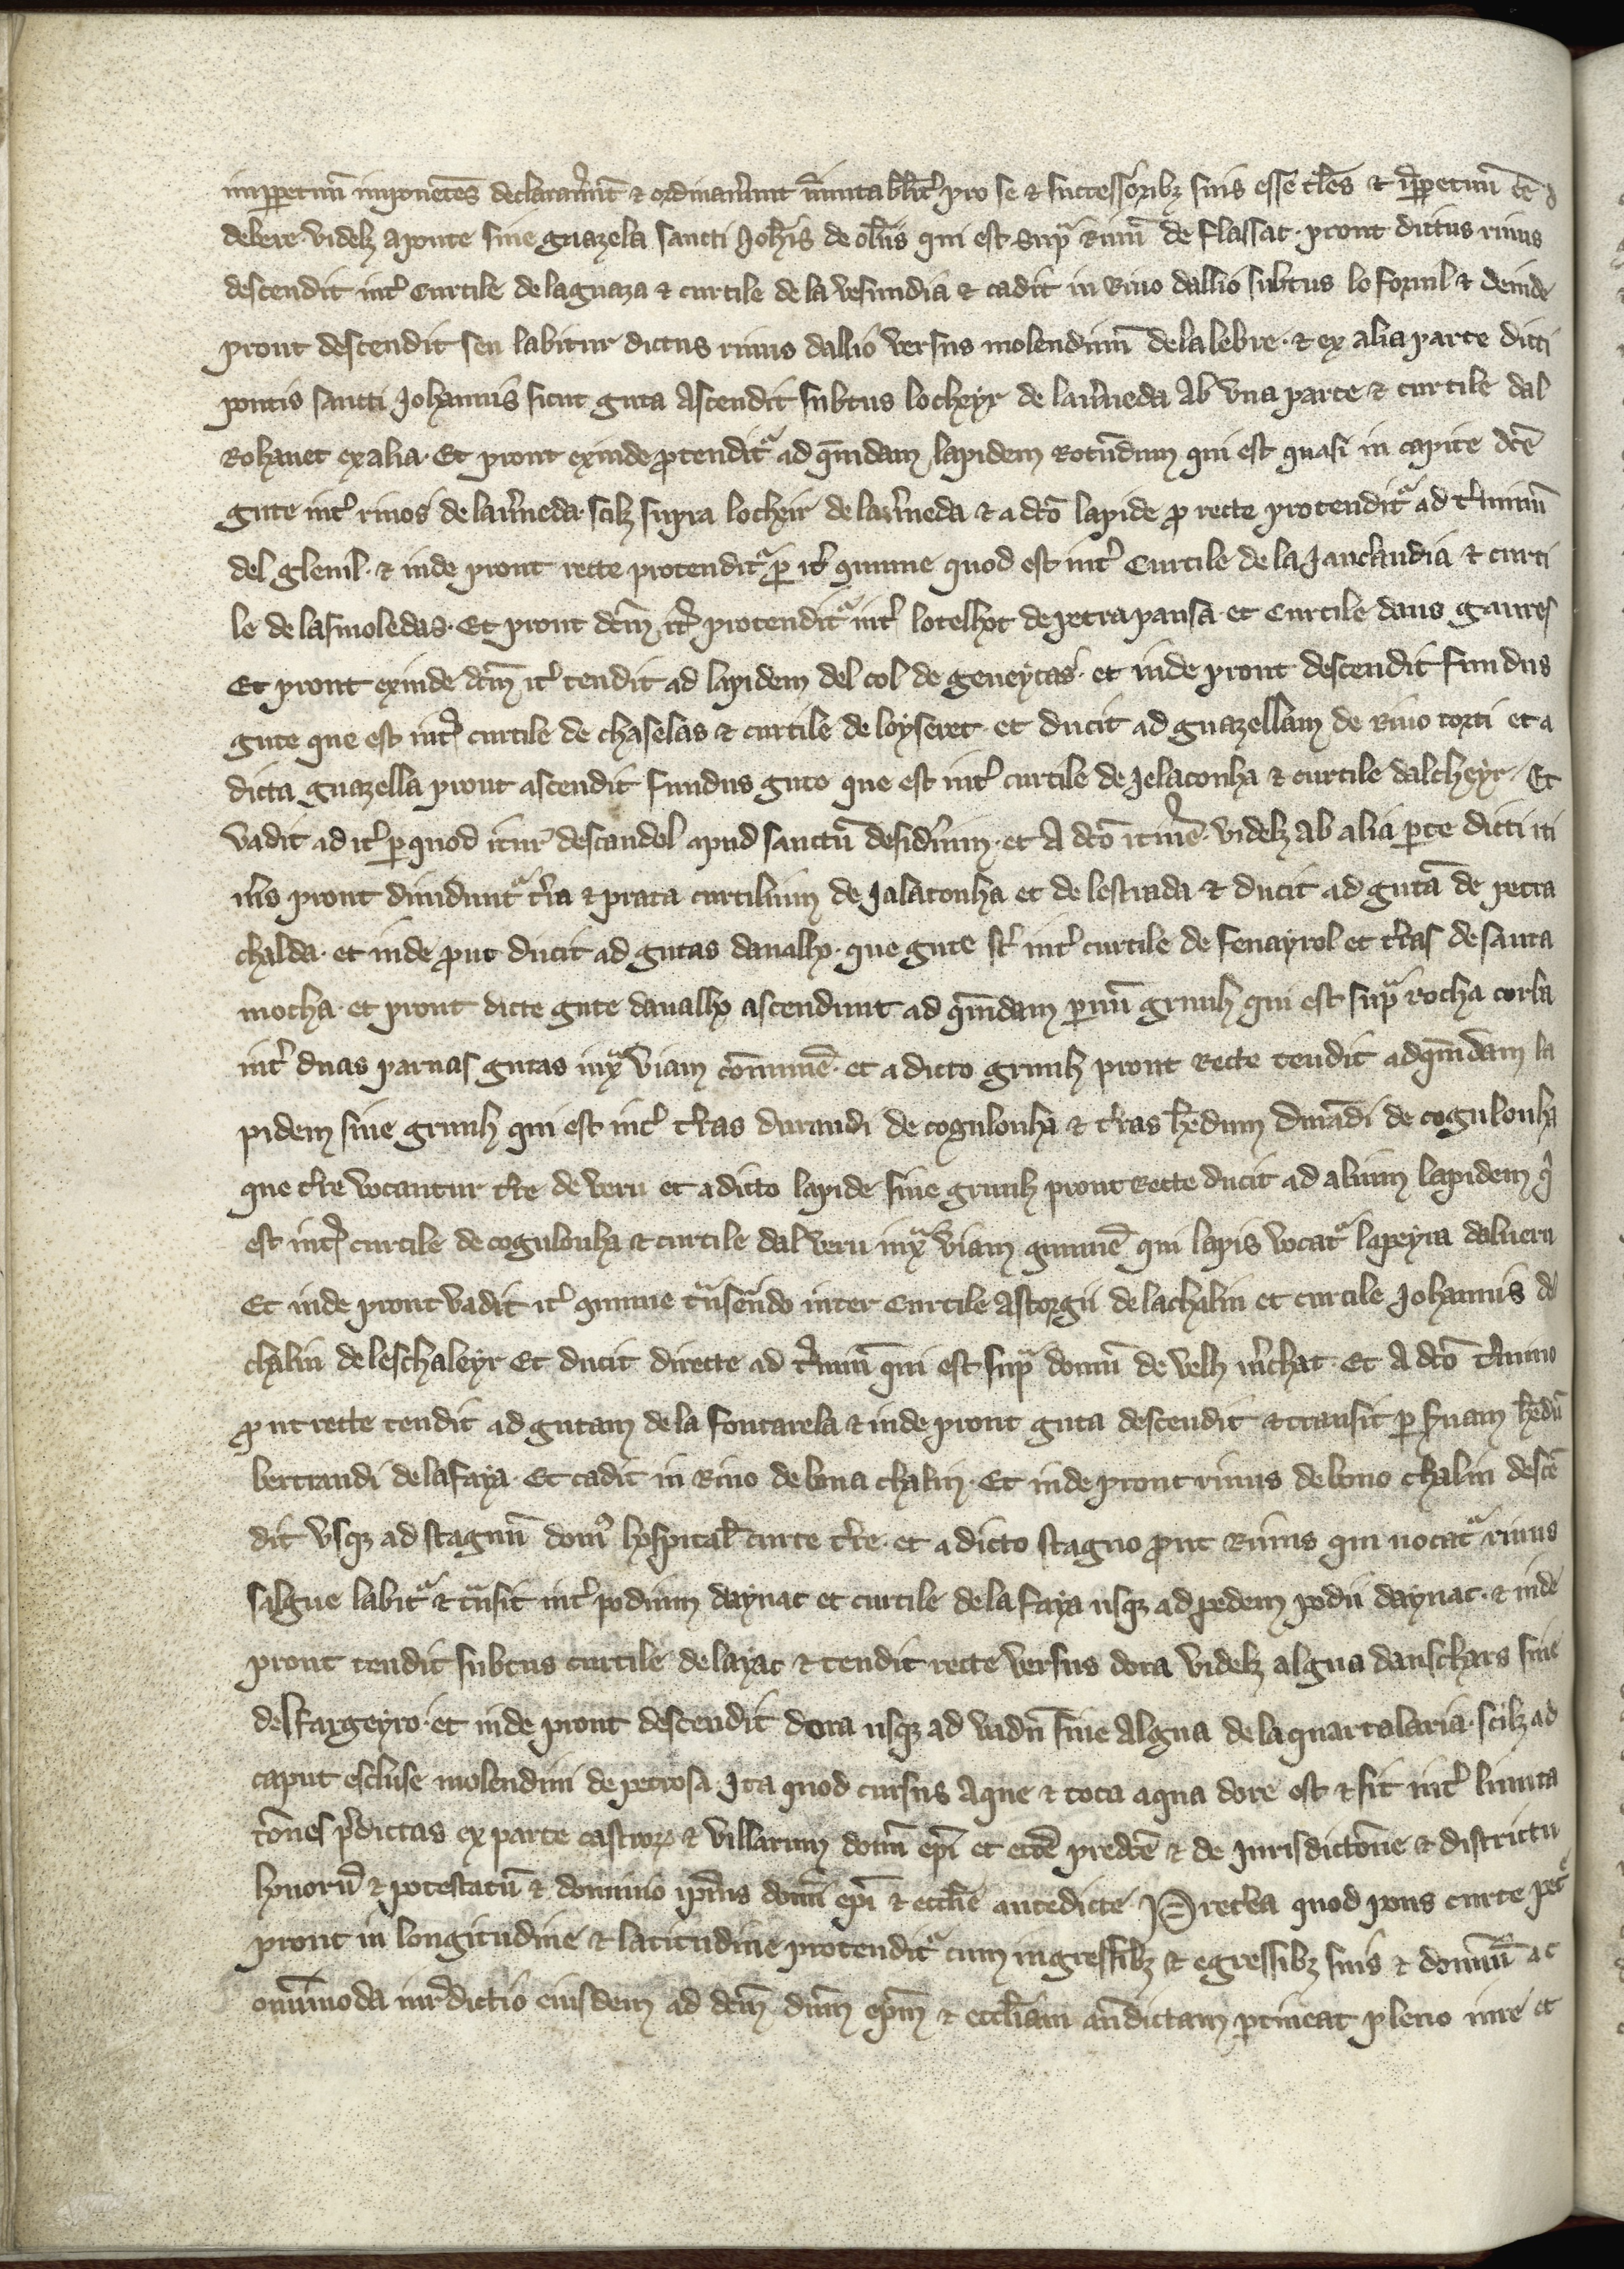 imperpetuũ imponẽtes declarav̾unt & ordinav̾unt īmutabilit̾ pro se & successoribꝫ suis esse t̾les & īperpetuũ
debere videlꝫ a ponte sive guazela sancti Joh̃is qui est sup̾ Rivũ de flassac · prout dictus rivus
descendit int̾ Curtile de la guaza & curtile de la vesundia & cadit in Rivo dallio subtus lo fornil & deinde
prout descendit seu labitur dictus rivus dallio versus molendinũ de la lebre · & ex alia parte dicti
pontis sancti Johannis sicut guta Ascendit subtus locheyr de lav̾neda Ab una parte & curtile dal
Rohanet ex alia · Et prout exinde ꝓtendit᷑ ad q̃mdam lapidem Rotũdum qui est quasi in capite dc̃e
gute int̾ rivos de lav̾neda · scilꝫ supra locheir de lav̾neda & a dc̃o lapide ꝓ recte protendit᷑ ad t̾minũ
del glenil · & inde prout recte protendit᷑ ꝑ it̾ ꝯmune quod est int̾ Curtile de la Jauclandia & curti
le de las moledas · Et prout dc̃m it̾ protendit᷑ int̾ lo telhot de petra pausa et Curtile daus gaures
Et prout exinde dc̃m it̾ tendit ad lapidem del col de geneytas · et inde prout descendit fundus
gute que est int̾ curtile de chaselas & curtile de loyseret · et ducit ad guazellam de Rivo torti et a
dicta guazella prout ascendit fundus gute que est int̾ curtile de Jelaconha & curtile dalcheyr · Et
vadit ad it̾ ꝑ quod itur descandol apud sanctũ desid̾ium · et A dc̃o itiñe · videlꝫ ab alia ꝑte dicti iti
ñis prout dividunt᷑ t̾ra & prata curtilium de Jalaconha et de lestrada & ducit ad gutã de petra
chalda · et inde ꝓut ducit ad gutas davalho · que gute st̃ int̾ curtile de fenayrol et t̾ras de sauta
mocha · et prout dicte gute davalho ascendunt ad q̃mdam ꝑvũ grunh qui est sup̾ rocha corba
int̾ duas parvas gutas iux̾ viam cõmunẽ · et a dicto grunh prout Recte tendit ad q̃mdam la
pidem sive grunh qui est int̾ t̾ras durandi de cogulonha & t̾ras h̃edum Durãdi de cogulonha
que t̾re vocantur t̾re de veru et a dicto lapide sive grunh prout Recte ducit ad alium lapidem q̇
est int̾ curtile de cogulonha & curtile dal veru iux̾ viam ꝯmunẽ qui lapis vocat᷑ lapeyra dal veru
Et inde prout vadit it̾ ꝯmune t̃nseũdo inter Curtile Astorgii de la chalm et curtile Johannis de
chalm de leschaleyr Et ducit directe ad t̾minũ qui est sup̾ domũ de velh m̃chat · Et A dc̃o t̾mino
ꝓut recte tendit ad gutam de la fontarela & inde prout guta descendit & transit ꝑ fayam h̃edũ
bertrandi de la faya · Et cadit in Rivo de bona chalm · Et inde prout rivus de bono chalm descẽ
dit usqꝫ ad stagnũ dom̾ hospital̃ curte t̾re · et a dicto stagno ꝓut Rivus qui vocat᷑ rivus
salgue labit᷑ & t̃nsit int̾ podium daynac et curtile de la faya usqꝫ ad pedem podii daynac · & inde
prout tendit subtus curtile de layac & tendit recte versus dora videlꝫ algua dauschars sive
del fargeyro · et inde prout descendit dora usqꝫ ad vadũ sive Algua de la quartalaria · scilꝫ ad
caput escluse molendini de petrosa · Ita quod cursus Aque & tota aqua dore est & sit int̾ limita
tõnes p̾dictas ex parte castroꝝ & villarum dom̃ ep̃i et ecc̃e predc̃e & de Jurisdictõne & districtu
honorũ & potestatũ & dominio ip̃ius dom̃i ep̃i & eccl̃ie antedicte · Pret̾ea quod pons curte pet̾
prout in longitudine & latitudine protendit᷑ cum ingressibꝫ & egressibꝫ suis & dominiũ ac
om̃imoda iur̾dictio eiusdem ad dc̃m dñm ep̃m & eccl̃iam añdictam ꝑtineat pleno iure et